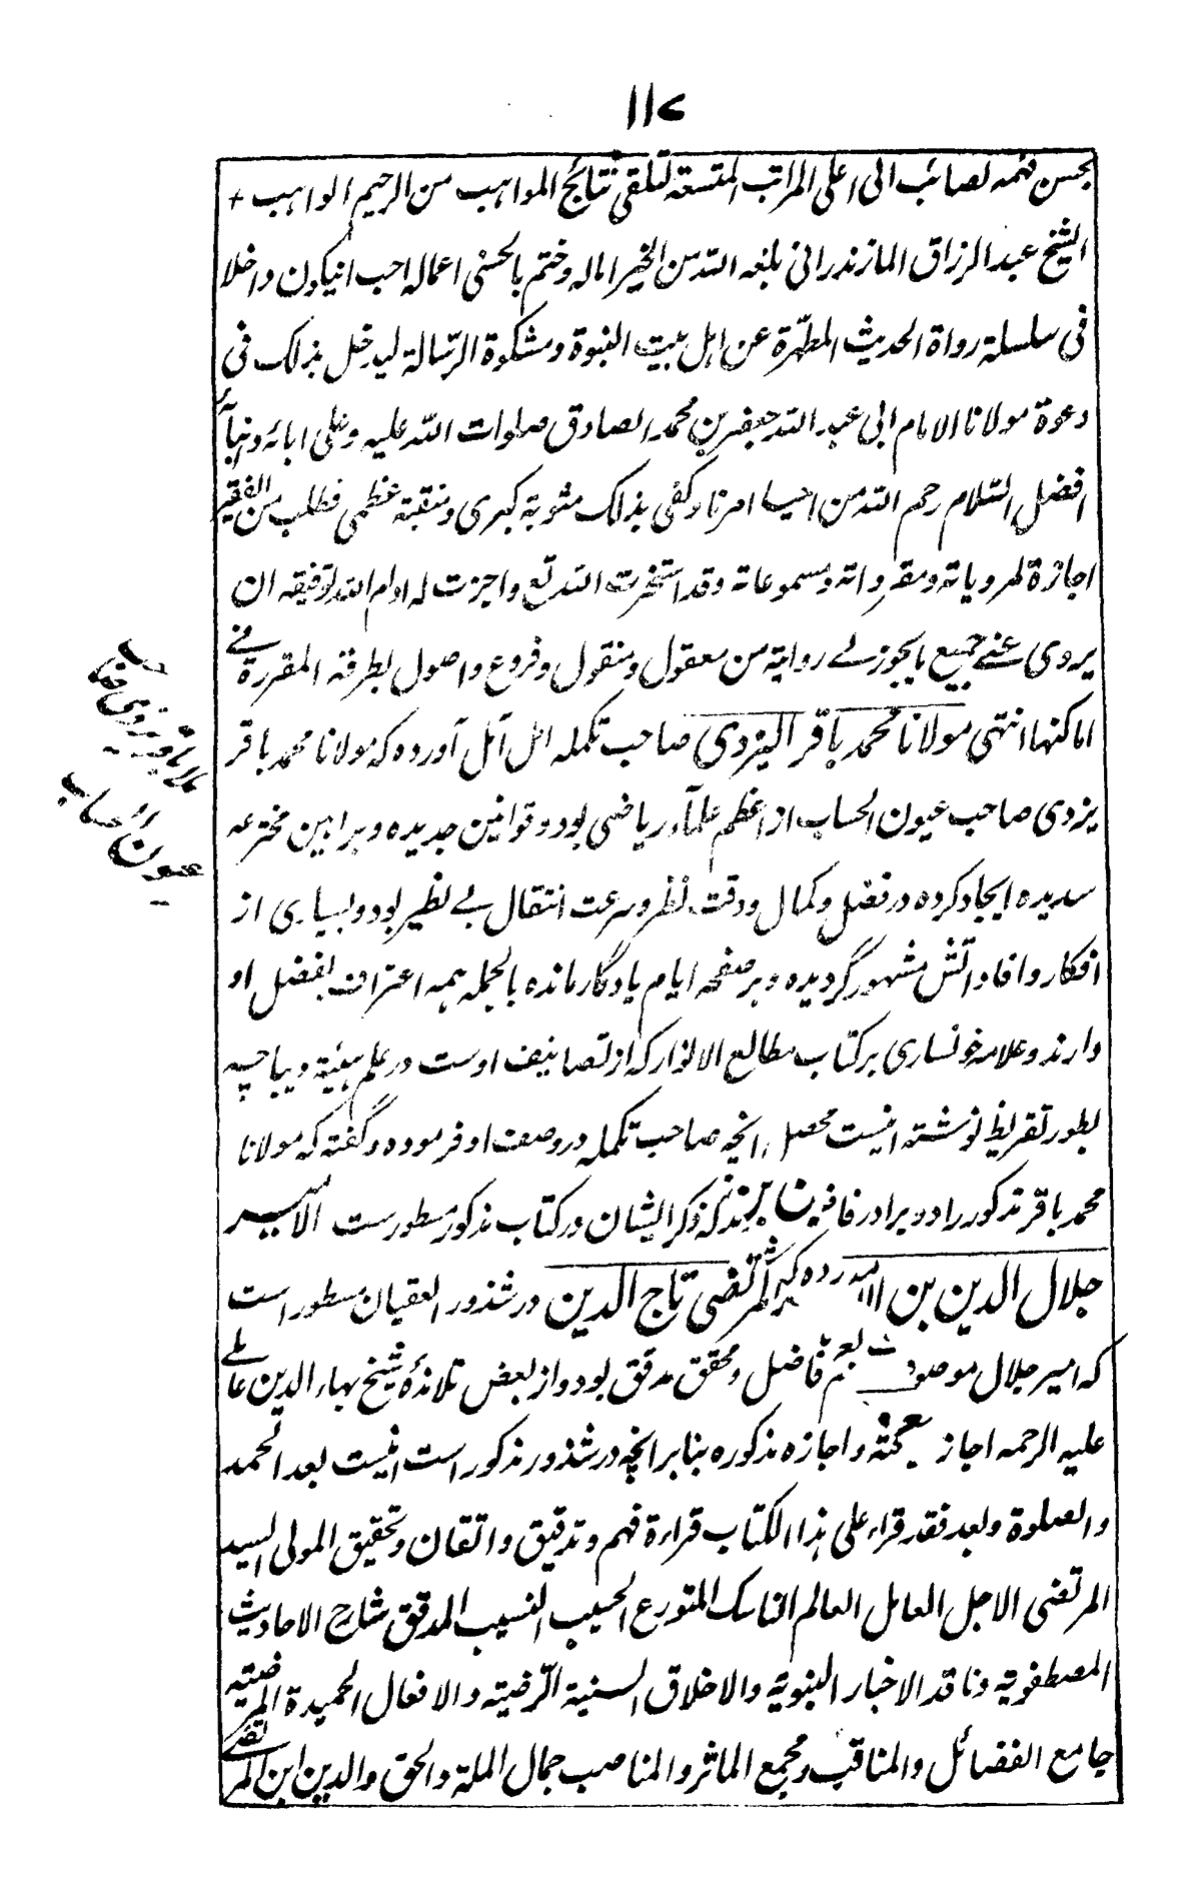 ۱۱۷
بحسن فهمه الصائب الى اعلى المراتب المتسعة لتلقى نتائج المواهب من الرحيم الواهب +
الشيخ عبد الرزاق المازندرانى بلغه الله من الخير اماله وختم بالحسنى اعماله احب انيكون داخلا
فى سلسلة رواة الحديث المطهّرة عن اهل بيت النبوة ومشكوة الرّسالة ليدخل بذلك فى
دعوة مولانا الامام ابى عبد الله جعفر بن محمد الصادق صلوات الله عليه وعلى ابائه وابنآئه
افضل السّلام رحم الله من احيا امرنا وكفى بذلك مثوبة كبرى ومنقبة عظمى فطلب من الفقير
اجازة لمروياته ومقرواته ومسموعاته وقد استخرت الله تع واجزت له ادام الله توفيقه ان
يروى عنے جميع مايجوز لے روايته من معقول ومنقول وفروع واصول بطرقه المقررة فے
اماكنها انتهى مولانا محمد باقر اليزدى صاحب تكمله امل آمل آورده كه مولانا محمد باقر
يزدى صاحب عيون الحساب از اعظم علمآء رياضى بود و قوانين جديده و براهين مخترعه
سديده ايجاد كرده در فضل و كمال و دقت نظر و سرعت انتقال بے نظير بود و بسيارى از
افكار و افاداتش مشهور گرديده و بر صفحه ايام يادگار مانده بالجمله همه اعتراف بفضل او
دارند و علامه خونسارى بر كتاب مطالع الانوار كه از تصانيف اوست در علم هيئة ديباچه
بطور تقريظ نوشته اينست محصل انچه صاحب تكمله در وصف او فرموده و گفته كه مولانا
محمد باقر مذكور را دو برادر فاضل نيز بودند كه ذكر ايشان در كتاب مذكور مسطورست الامير
جلال الدين بن المرتضى تاج الدين در شذور العقيان مسطور است
كه امير جلال موصوف عالم فاضل و محقق مدقق بود و از بعض تلامذهٔ شيخ بهاء الدين عاملے
عليه الرحمه اجازه و اجازه مذكوره بنابر انچه در شذور مذكور است اينست بعد الحمد
والصلوة وبعد فقد قراء على هذا الكتاب قراءة فهم وتدقيق واتقان وتحقيق المولى السيد
المرتضى الاجل العامل العالم الناسك المتورع الحسيب النسيب المدقق شارح الاحاديث
المصطفوية وناقد الاخبار النبوية والاخلاق السنية الرّضية والافعال الحميدة المرضيّة
جامع الفضائل والمناقب ومجمع الماثر والمناصب جمال الملة والحق والدين ابن المرتضے
ملا باقر يزدى صاحب
عيون الحساب